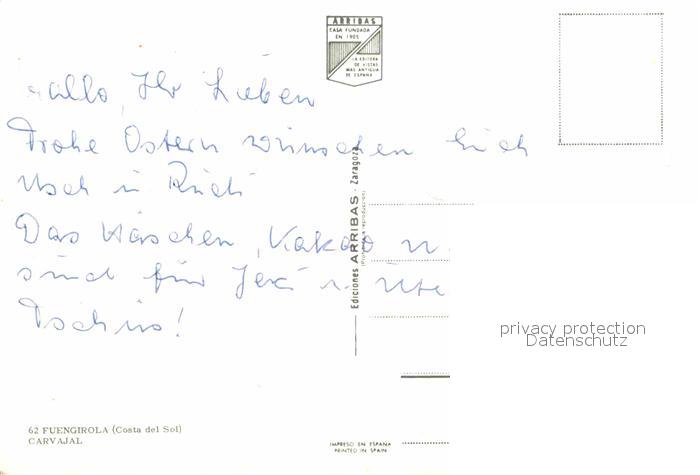 ARRIBAS
CASA FUNDADA
EN 1905
LA EDITORA
DE VISTAS
MAS ANTIGUA
DE ESPAÑA
Hallo, Ihr Lieben
Frohe Ostern wünschen Euch
Usch u Rudi
Das Häschen, Kakao u.
sind für Jexi u Ute
Tschüs!
Ediciones ARRIBAS - Zaragoza
62 FUENGIROLA (Costa del Sol)
CARVAJAL
IMPRESO EN ESPAÑA
PRINTED IN SPAIN
privacy protection
Datenschutz